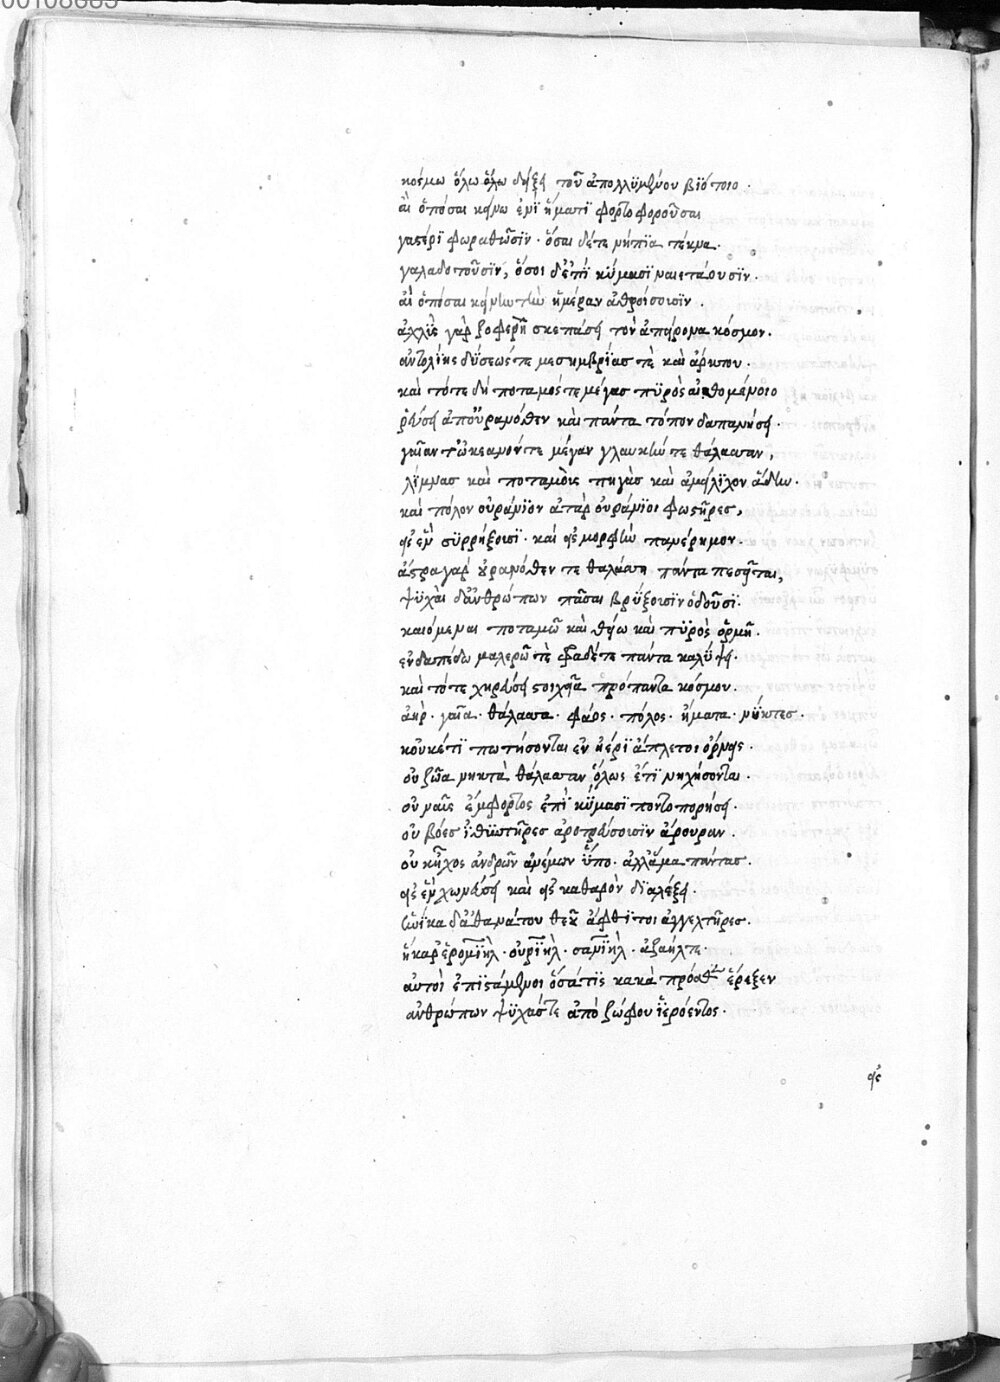 00108685
κόσμω ὅλω ὅλω δήξει τοῦ ἀπολλυμένου βιότοιο.
αἳ ὁπόσαι κείνω ἐπὶ ἤματι φόρτο φοροῦσαι
γαστέρι φωραθῶσϊν· ὅσαι δέ τε νήπϊα τέκνα.
γαλαδοτοῦσϊν, ὅσοι δ' ἐπὶ κύμασϊ ναιετάουσϊν.
αἳ ὁπόσαι κείνην τὴν ἡμέραν ἀθροίσοισϊν.
ἀχλὺς γὰρ ζοφερὴ σκεπάσει τὸν ἀπείρονα κόσμον.
ἀντολίης δύσεώς τε μεσημβρίας τὲ καὶ ἄρκτου.
καὶ τότε δὴ ποταμός τε μέγας πυρὸς αἰθομένοιο
ῥεύσει ἀπ' οὐρανόθεν καὶ πάντα τόπον δαπανήσει.
γαῖαν τ' ὠκεανόν τε μέγαν γλαυκήν τε θάλασσαν,
λίμνας καὶ ποταμοὺς πηγὰς καὶ ἀμείλϊχον ἅδην.
καὶ πόλον οὐράνϊον ἀτὰρ οὐράνϊοι φωστῆρες,
εἰς ἓν συρρήξοισϊ· καὶ εἰς μορφὴν πανέρημον.
ἄστρα γὰρ οὐρανόθεν τε θαλάσση πάντα πεσεῖται,
ψυχαὶ δ' ἀνθρώπων πᾶσαι βρύξοισϊν ὀδοῦσϊ.
καιόμεναι ποταμῶ καὶ θείω καὶ πυρὸς ὁρμῆ.
ἐν δαπέδω μαλερῶ τὲ σποδέ τε πάντα καλύψει.
καὶ τότε χηρεύσει στοιχεῖα πρόπαντα κόσμου.
ἀὴρ· γαῖα· θάλασσα· φάος· πόλος· ἤματα· νύκτες.
κοὐκέτι πωτήσονται ἐν ἠέρϊ ἄπλετοι ὄρνεις.
οὐ ζῶα νηκτὰ θάλασσαν ὅλως ἔτϊ νηχήσονται.
οὐ ναῦς ἔμφορτος ἐπὶ κύμασϊ ποντοπορήσει.
οὐ βόες ἰθυντῆρες ἀροτρεύσοισϊν ἄρουραν.
οὐκ ἦχος ἀνδρῶν ἀνέμων ὕπο. ἀλλ' ἅμα πάντας.
εἰς ἓν χωνεύσει καὶ εἰς καθαρὸν διαλέξει.
ἡνίκα δ' ἀθανάτου θεοῦ ἄφθϊτοι ἀγγελτῆρες.
ἥκαρ ἐρομϊήλ· οὐρϊήλ· σαμϊήλ· ἀζαήλτε
αὐτοὶ ἐπιστάμενοι ὅσά τϊς κακὰ πρόσθεν ἔρεξεν
ἀνθρώπων ψυχάς τε ἀπὸ ζόφου ἠερόεντος.
εἰς